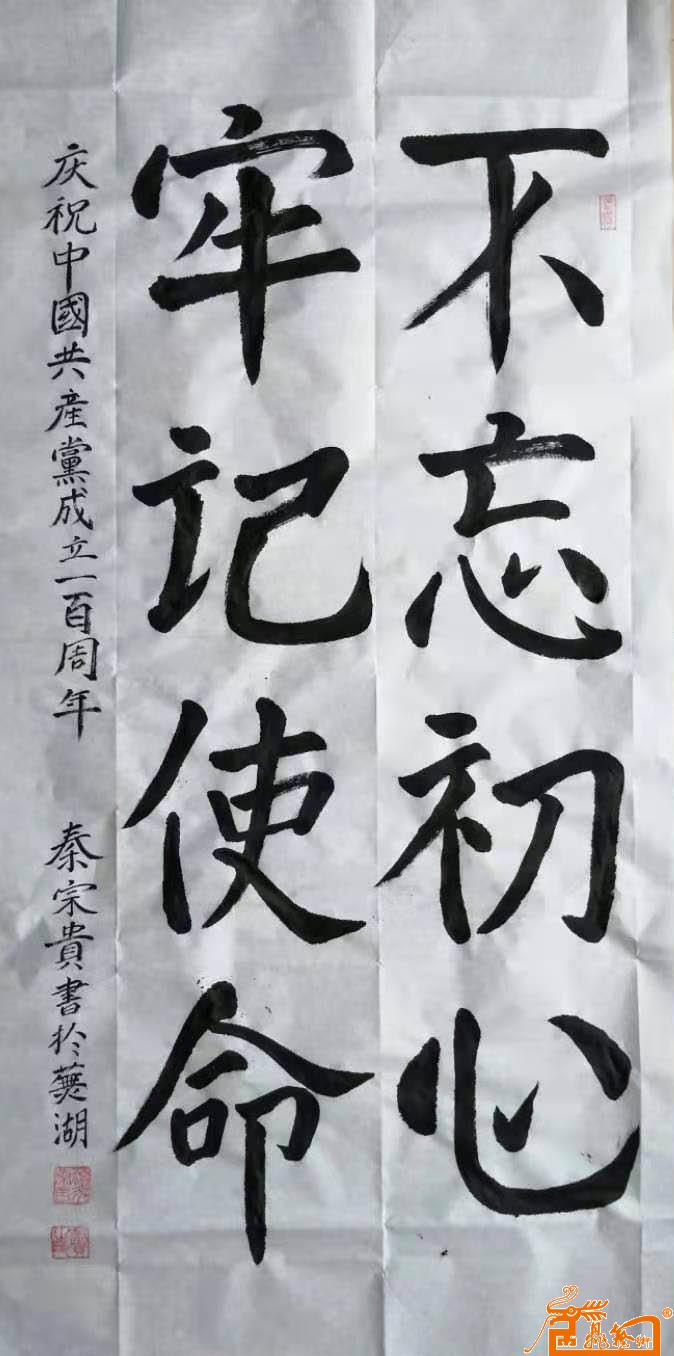 不忘初心
牢记使命
庆祝中國共產黨成立一百周年 秦宗貴書於蕪湖